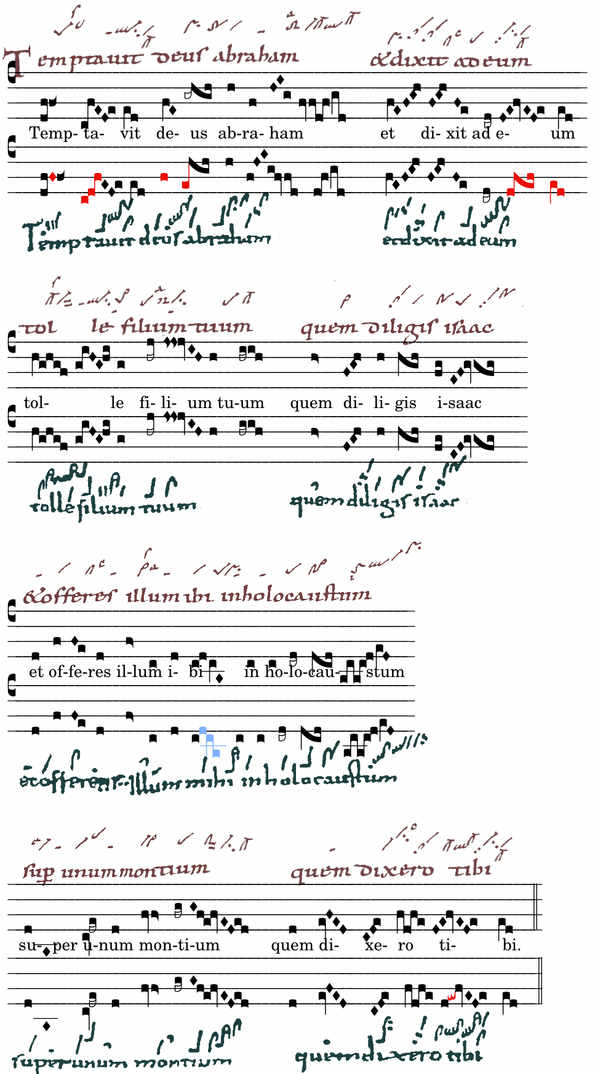 Temptavit deus abraham &dixit adeum
Temp- ta- vit de- us ab-ra- ham et di- xit ad e- um
Temptavit deus abraham etdixit adeum
tol le filium tuum quem diligis isaac
tol- le fi- li- um tu-um quem di- li- gis i-saac
tolle filium tuum quem diligis isaac
&offeres illum ibi inholocaustum
et of-fe-res il-lum i- bi in ho-lo-cau- stum
inholocaustum
sup unum montium quem dixero tibi
su- per u-num mon-ti-um quem di- xe- ro ti- bi.
super unum montium quem dixero tibi